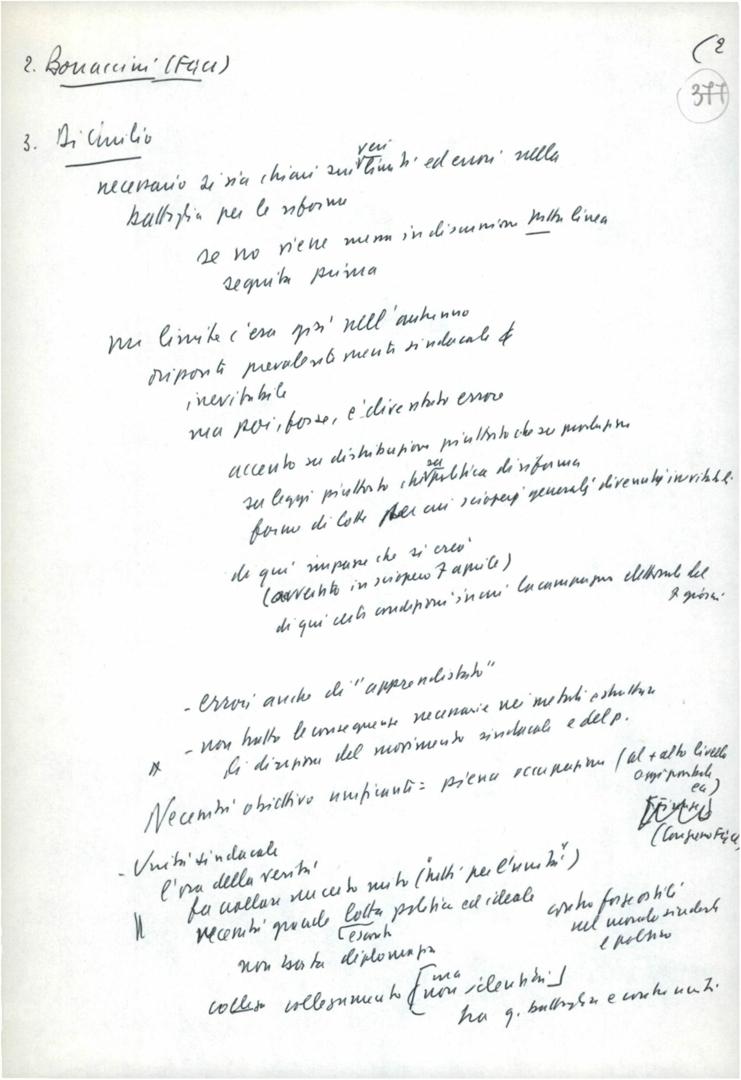 (2
377
2. Bonaccini (FGCI)
3. Di Giulio
necessario si sia chiari sui veri limiti ed errori nella
battaglia per le riforme
se no viene messa in discussione tutta linea
seguita prima
un limite c'era già nell'autunno
prevalentemente sindacale
inevitabile
ma poi, forse, è diventato errore
accento su distribuzione piuttosto che su produzione
su leggi piuttosto che su politica di riforma
forme di lotta per cui scioperi generali divenuti inevitabili
di qui impasse che si creò
(avvertito in sciopero 7 aprile)
di qui certe condizioni in cui la campagna elettorale del
giugno
- errori anche di "apprendistato"
- non tratto le conseguenze necessarie nei metodi e strutture
di direzione del movimento sindacale e del p.
Necessità obiettivo unificante = piena occupazione (al + alto livello
oggi possibile
ecc)
(Congresso FGCI)
- Unità sindacale
l'ora della verità
fa crollare un certo mito ("tutti per l'unità")
necessità grande lotta politica ed ideale
contro forze ostili
nel mondo sindacale
e politico
non basta diplomazia
collegamento [ma non identità]
tra q. battaglia e contenuti.